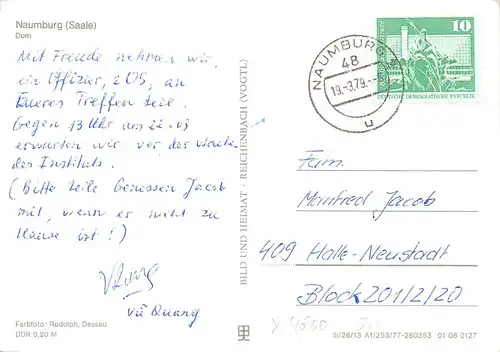 Naumburg (Saale)
Dom
Mit Freude nehmen wir,
ein Offizier, 2 OS, an
Eueres Treffen teil.
Gegen 13 Uhr am 22.03
erwarten wir vor der Wache
des Instituts.
(Bitte teile Genossen Jacob
mit, wenn er nicht zu
Hause ist!)
Vũ Quang
Farbfoto: Rudolph, Dessau
DDR 0,20 M
BILD UND HEIMAT · REICHENBACH (VOGTL)
NAUMBURG
48
19.-3.79.
u
10
DEUTSCHE DEMOKRATISCHE REPUBLIK
Fam.
Manfred Jacob
409 Halle-Neustadt
Block 201/2/20
III/26/13 A1/253/77-280353 01 08 0127